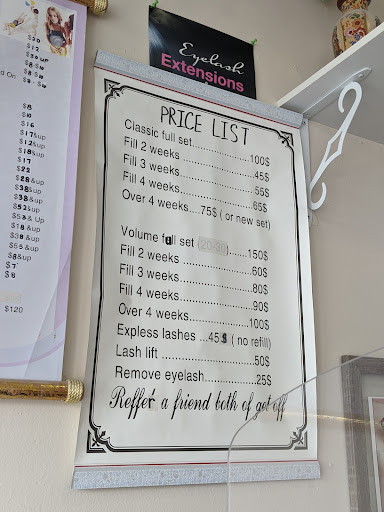 $20
$12
$8
$10
$16
$17&up
$12&up
$18&up
$17
$22
$28&up
$38&up
$38&up
$52&up
$5 & Up
$18 &up
$38 &up
$55 &up
$8&up
$7
$8
$120
Eyelash
Extensions
PRICE LIST
Classic full set......................100$
Fill 2 weeks ......................45$
Fill 3 weeks.......................55$
Fill 4 weeks ......................65$
Over 4 weeks....75$ ( or new set)
Volume full set (20-30).....150$
Fill 2 weeks ......................60$
Fill 3 weeks.......................80$
Fill 4 weeks.......................90$
Over 4 weeks..................100$
Expless lashes ...45$ ( no refill)
Lash lift ............................50$
Remove eyelash...............25$
Reffer a friend both of get off